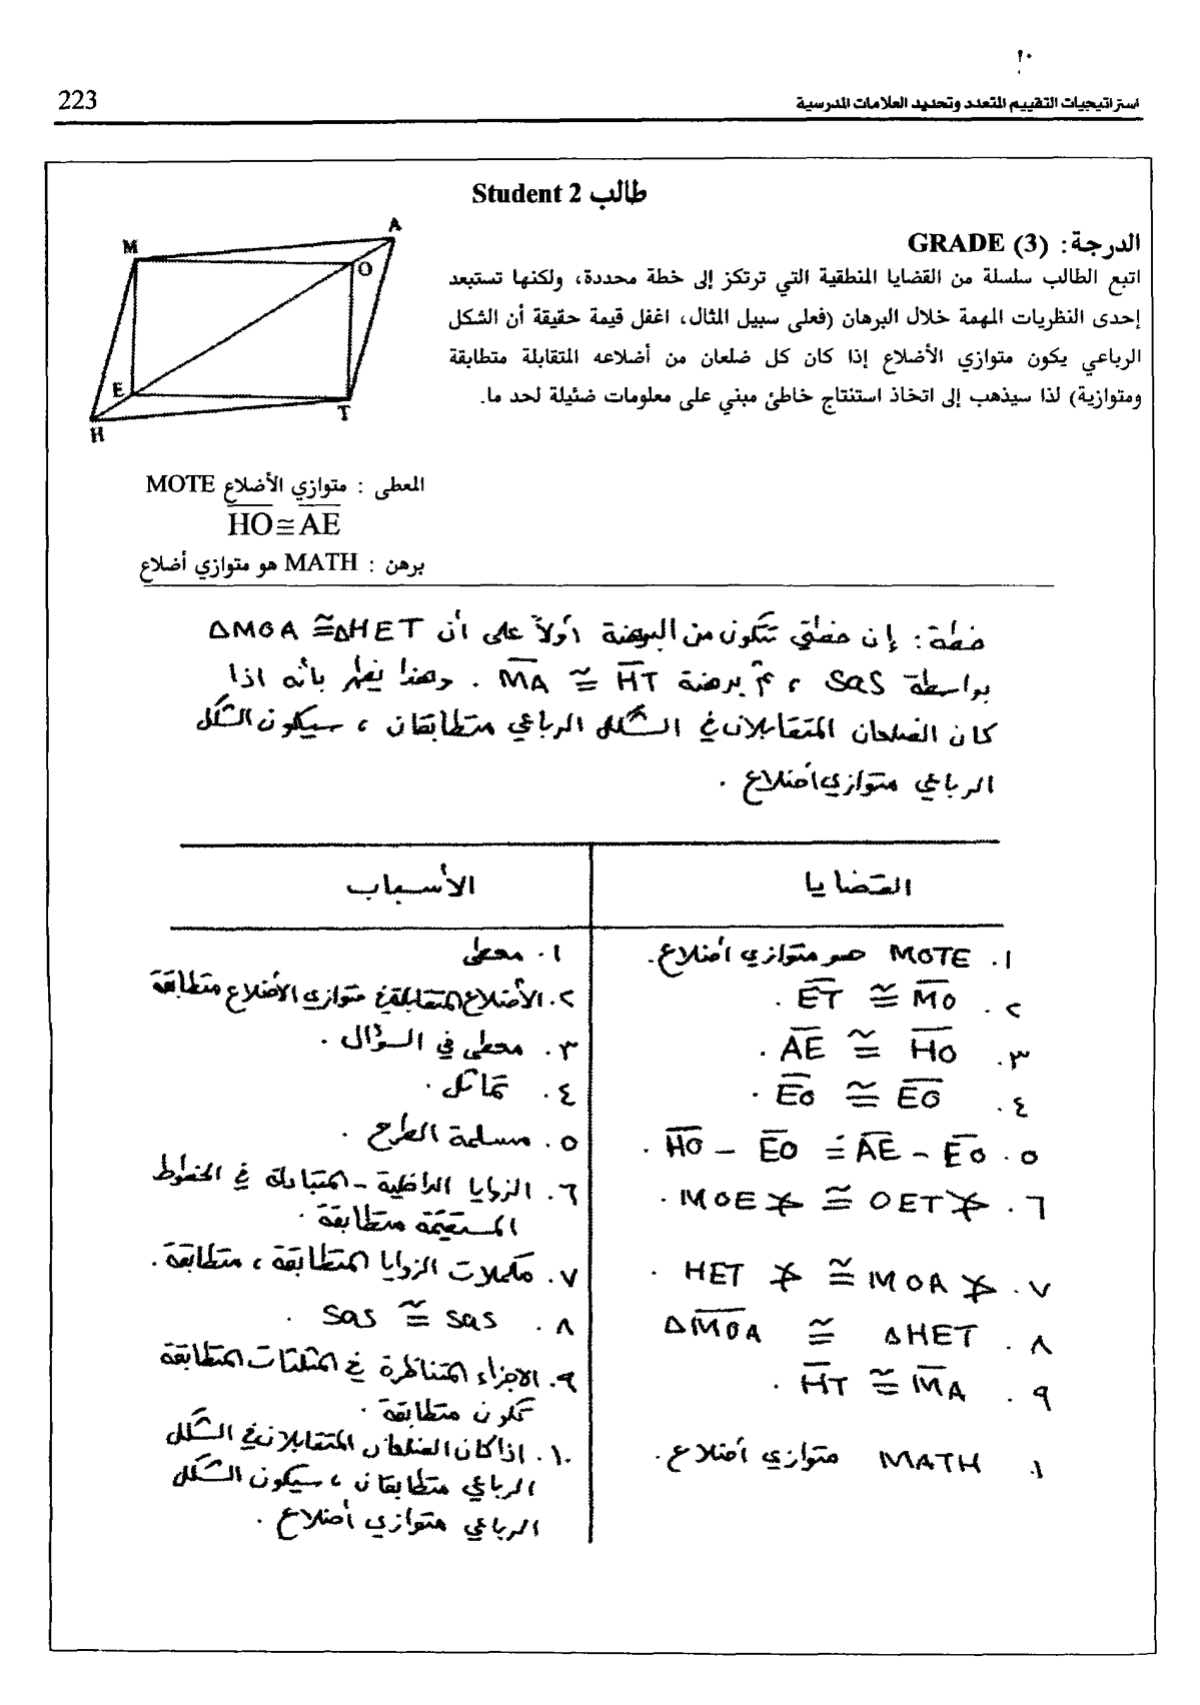 استراتيجيات التقييم المتعدد وتحديد العلامات المدرسية 223
طالب Student 2
الدرجة: GRADE (3)
اتبع الطالب سلسلة من القضايا المنطقية التي ترتكز إلى خطة محددة، ولكنها تستبعد
إحدى النظريات المهمة خلال البرهان (فعلى سبيل المثال، اغفل قيمة حقيقة أن الشكل
الرباعي يكون متوازي الأضلاع إذا كان كل ضلعان من أضلاعه المتقابلة متطابقة
ومتوازية) لذا سيذهب إلى اتخاذ استنتاج خاطئ مبني على معلومات ضئيلة لحد ما.
A
M
O
E
T
H
المعطى : متوازي الأضلاع MOTE
HO ≅ AE
برهن : MATH هو متوازي أضلاع
خطة: إن خطتي تتكون من البرهنة أولاً على أن ΔMOA ≅ ΔHET
بواسطة SAS ، ثم برهنة MA ≅ HT . وهذا يظهر بأنه اذا
كان الضلعان المتقابلان في الشكل الرباعي متطابقان ، سيكون الشكل
الرباعي متوازي أضلاع .
القضايا
الأسباب
١. MOTE هو متوازي أضلاع.
١. معطى
٢. ET ≅ MO .
٢. الأضلاع المتقابلة في متوازي الأضلاع متطابقة
٣. AE ≅ HO .
٣. معطى في السؤال .
٤. EO ≅ EO .
٤. تماثل .
٥. HO – EO = AE – EO .
٥. مسلمة الطرح .
٦. MOE ∢ ≅ OET ∢ .
٦. الزوايا الداخلية - المتبادلة في الخطوط
المستقيمة متطابقة .
٧. HET ∢ ≅ MOA ∢ .
٧. مكملات الزوايا المتطابقة ، متطابقة .
٨. ΔMOA ≅ ΔHET
٨. SAS ≅ SAS .
٩. HT ≅ MA .
٩. الاجزاء المتناظرة في المثلثات المتطابقة
تكون متطابقة .
١. MATH متوازي أضلاع.
١٠. اذا كان الضلعان المتقابلان في الشكل
الرباعي متطابقان ، سيكون الشكل
الرباعي متوازي أضلاع .